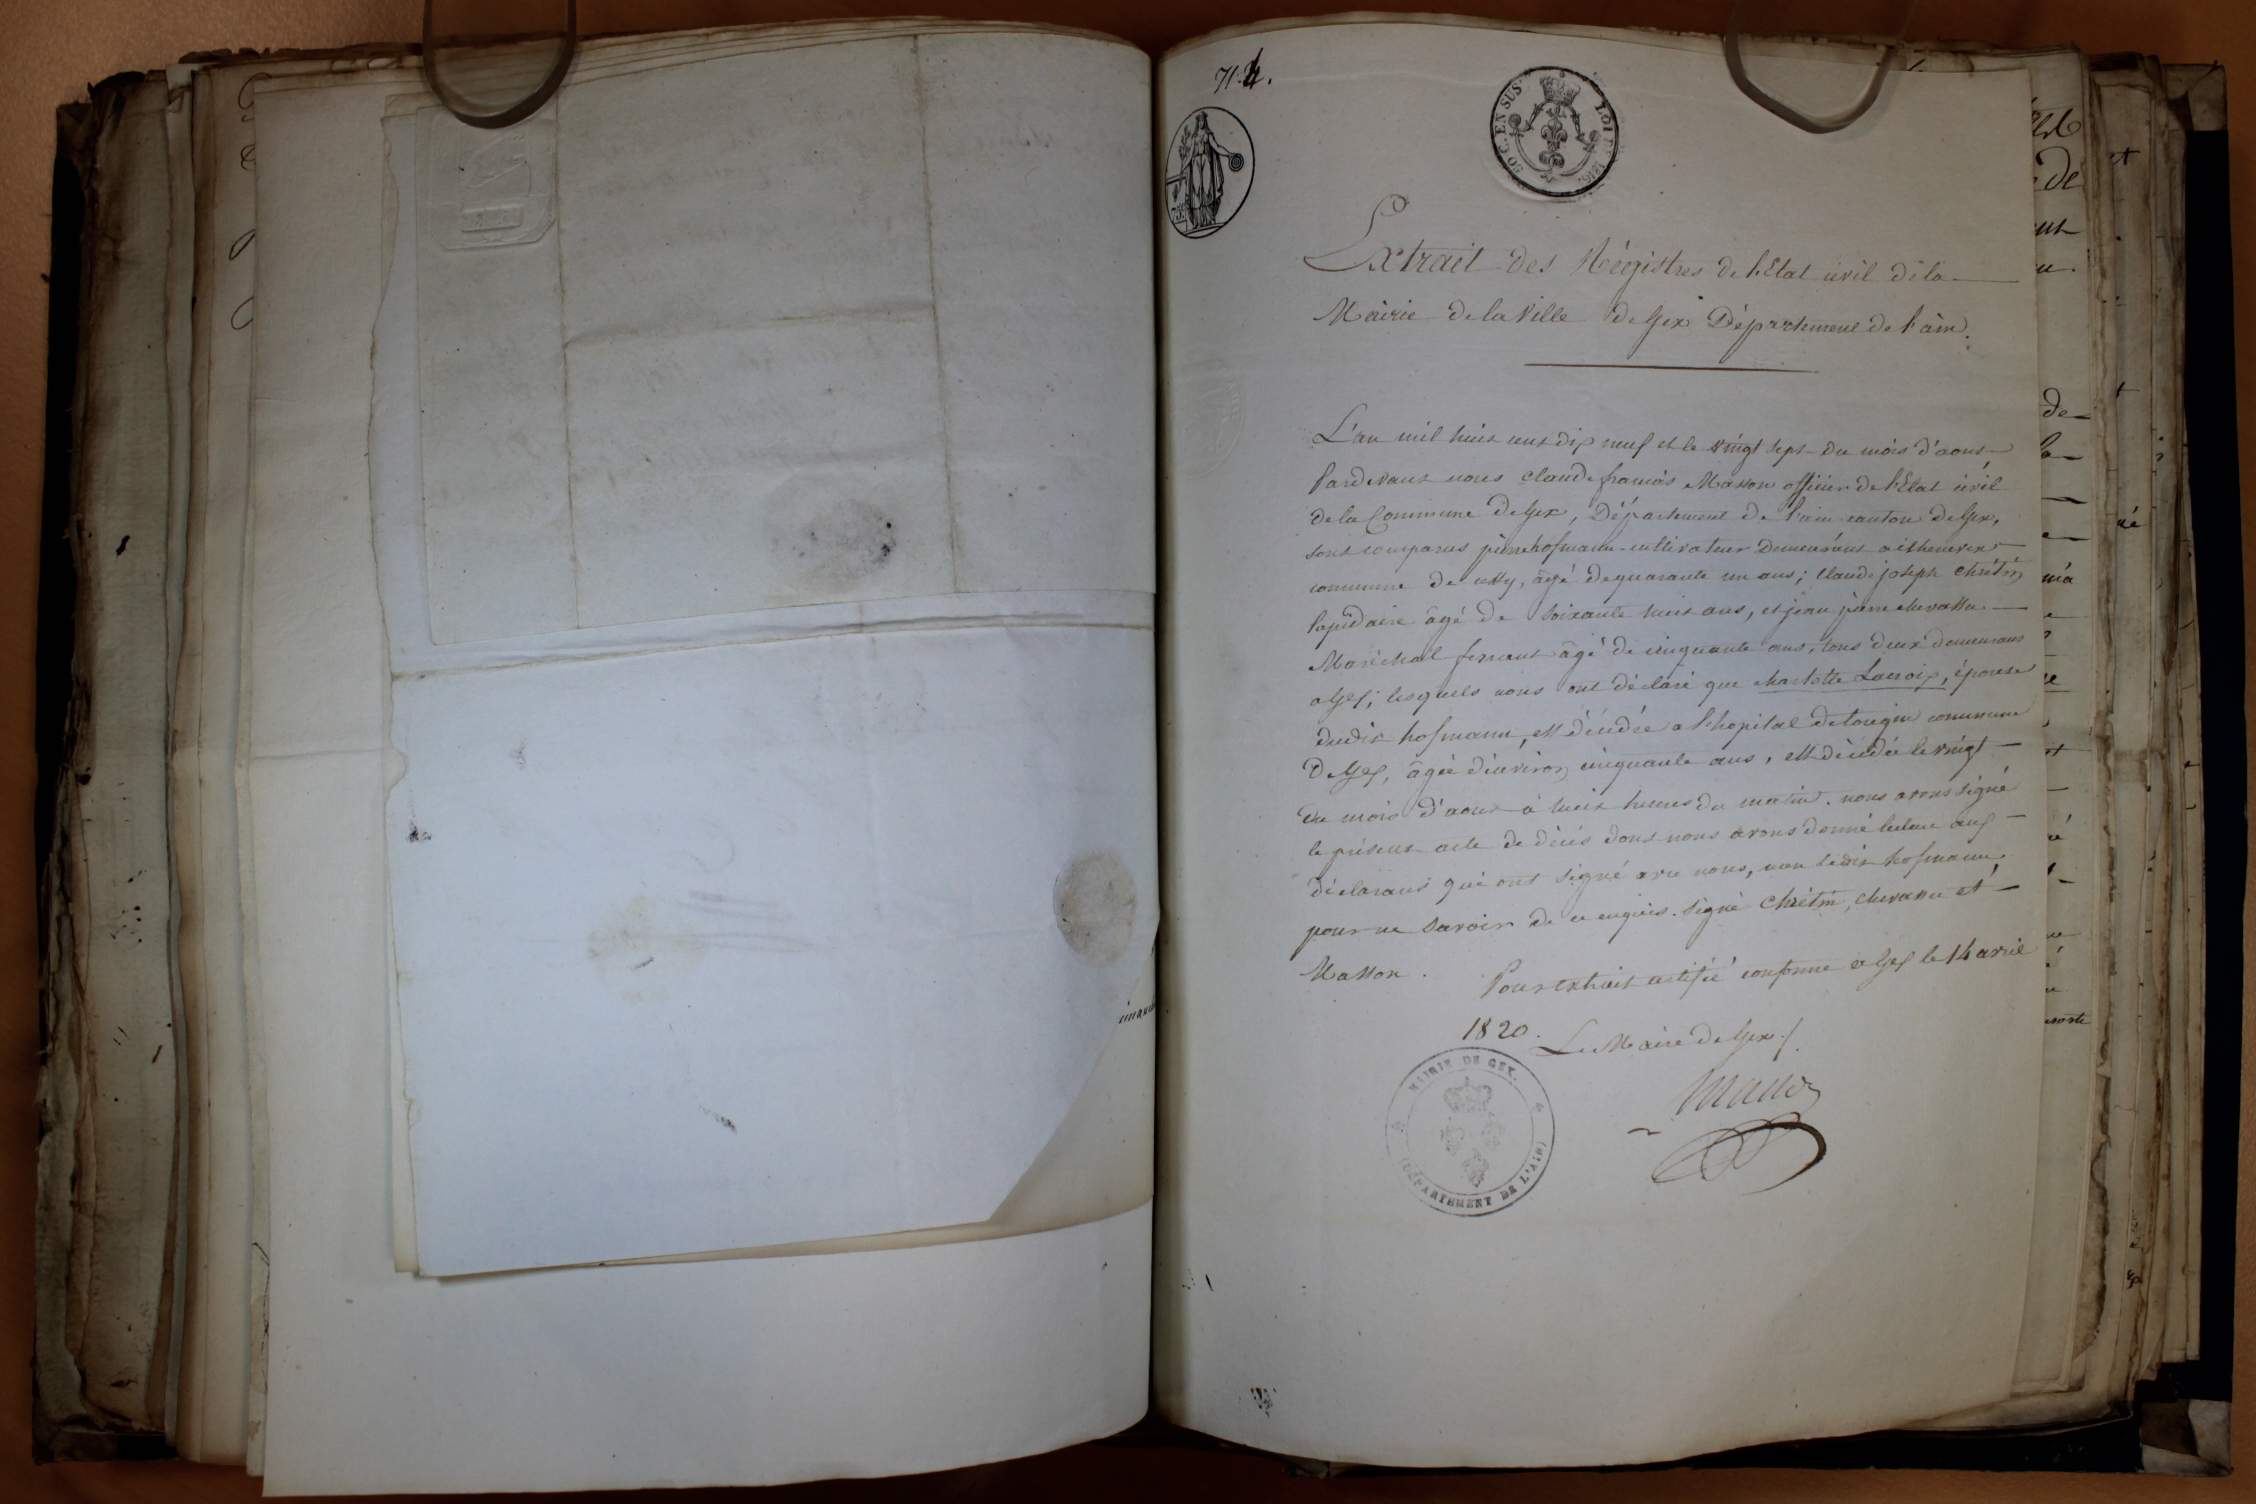 71.4.
50 C. EN SUS.
LOI DE 1816.
Extrait des Régistres de l'Etat civil de la
Mairie de la Ville de Gex Département de l'ain.
L'an mil huit cent dix neuf et le vingt sept du mois d'aout
Pardevant nous Claude françois Masson officier de l'Etat civil
de la Commune de Gex, Département de l'ain canton de Gex,
sont comparus pierre hofmann cultivateur Demeurant a
commune de, âgé de quarante un ans; Claude joseph Chrétin
lapidaire âgé de soixante huit ans, et jean pierre chevassu
Maréchal ferrant âgé de cinquante ans, tous deux demeurans
a Gex; lesquels nous ont déclaré que charlotte Lacroix, épouse
dudit hofmann, est décédée a l'hopital de tougin commune
De Gex, âgée d'environ cinquante ans, est décédée le vingt
du mois d'aout à huit heures du matin. nous avons signé
le présent acte de décés dont nous avons donné lecture aux
déclarans qui ont signé avec nous, non ledit hofmann,
pour ne savoir de ce enquis. signé Chrétin, chevassu et
Masson.
Pour extrait certifié conforme a Gex le 14 avril
1820.
Le Maire de Gex.
MAIRIE DE GEX.
(DÉPARTEMENT DE L'AIN)